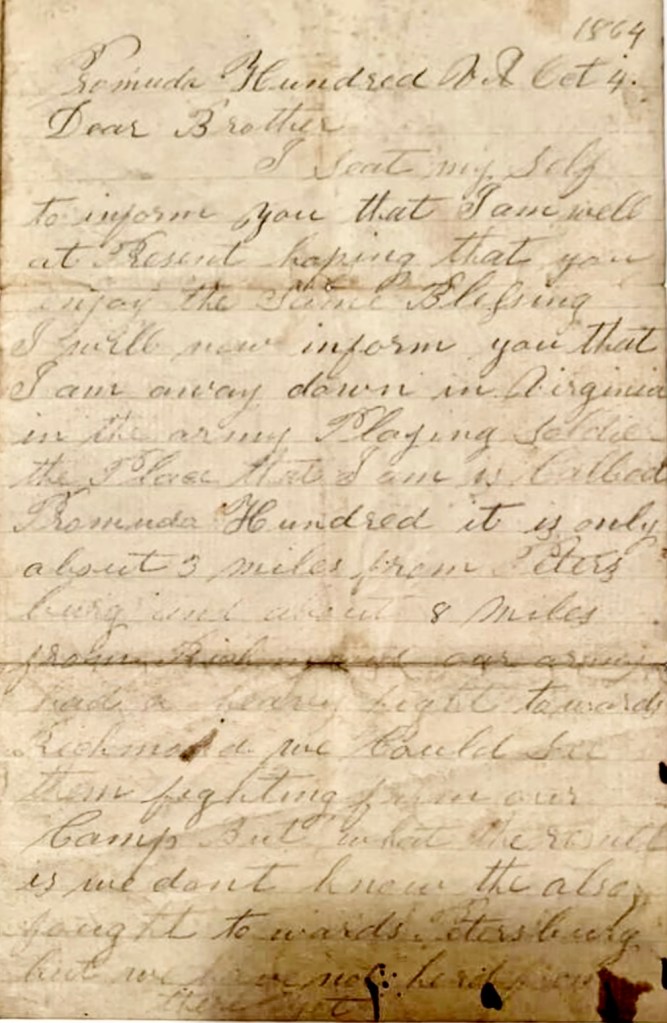 1864
Bromuda Hundred VA Oct 4.
Dear Brother
I seat my self
to inform you that I am well
at Present hoping that you
enjoy the Same Blessing
I will now inform you that
I am away down in Virginia
in the army Playing Soldie
the Place that I am is Called
Bromuda Hundred it is only
about 3 miles from Peters
burg and about 8 Miles
from Richmond our army
had a heavy fight towards
Richmond we Could See
them fighting from our
Camp But what the result
is we dont know the also
fought towards Petersburg
but we have not herd from
there yet